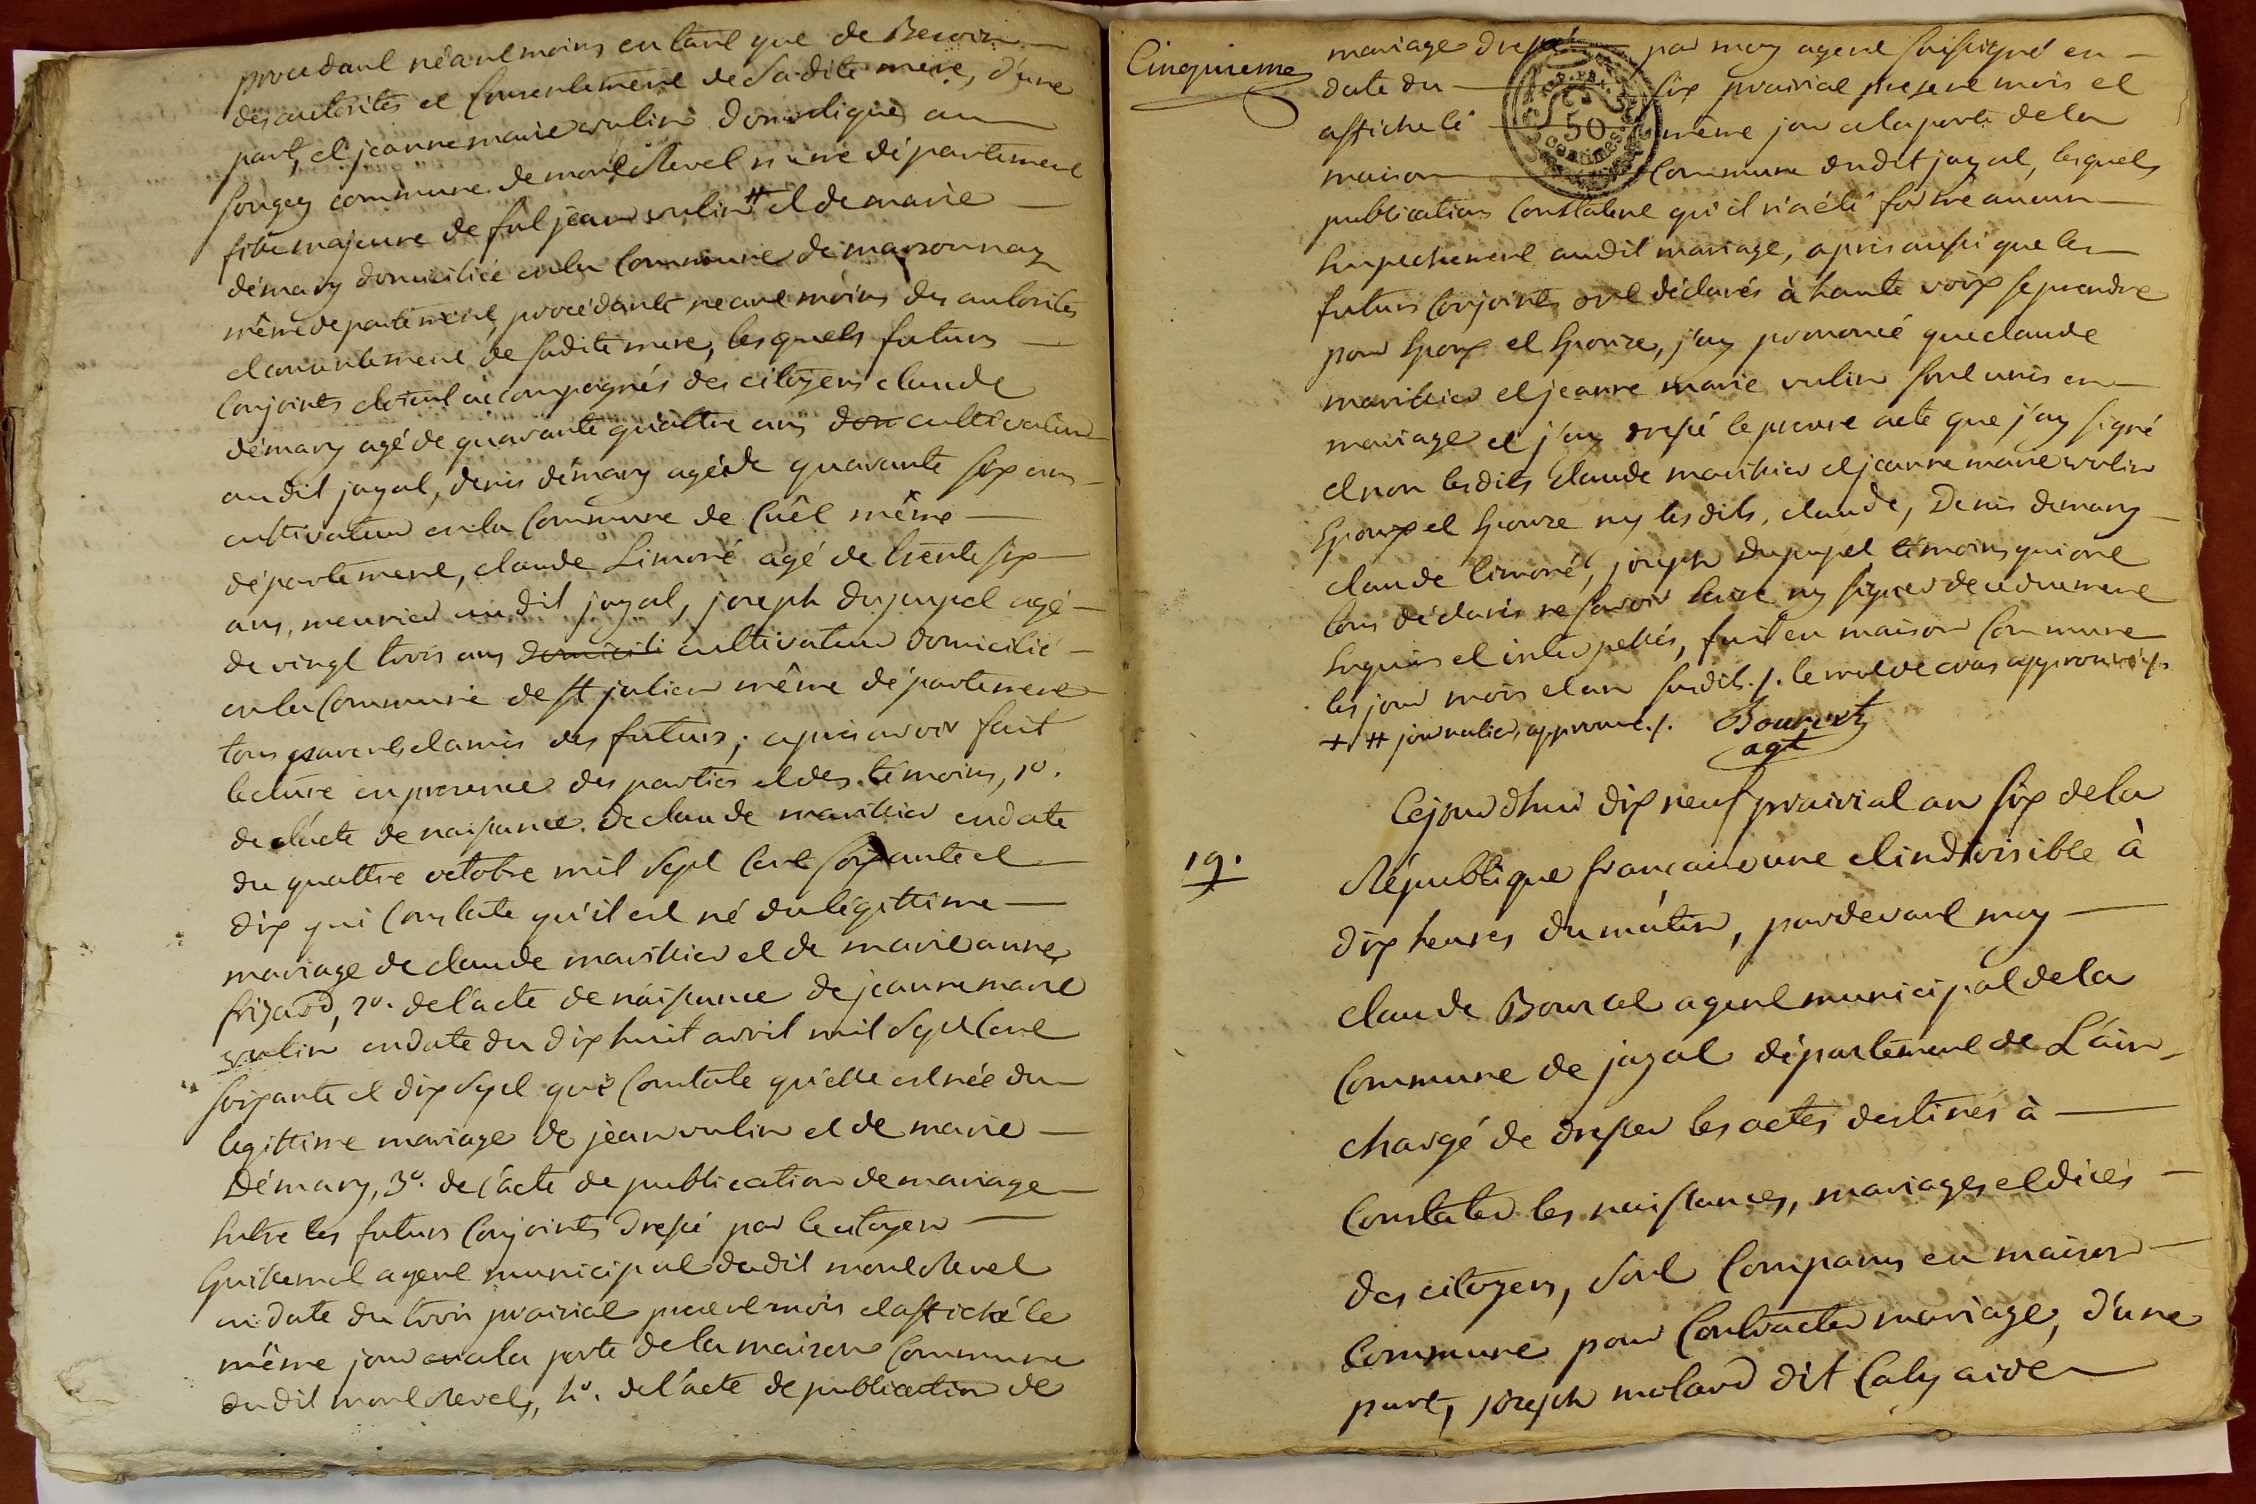 procedant néantmoins en tant que de Besoin
des autorités et Consentement de sadite mere, d'une
part, et jeanne marie vulin domestique au
Songey commune de mont Revel même département
fille majeure de fut jean vulin # et de marie
démary domiciliée en la Commune de marsonnay
même departement, procédante neantmoins des autorités
et consentement de sadite mere, lesquels futurs
Conjoints etoient accompagnés des citoyens claude
démary agé de quarante quattre ans don cultivateur
audit jayat, denis démary agé de quarante six ans
cultivateur en la Commune de Cuêt même
département, claude Limoné agé de trente six
ans, meunier audit jayat, joseph dupupet agé
de vingt trois ans domicili cultivateur domicilié
en la Commune de st julien même département
tous parents et amis des futurs; apres avoir fait
lecture en presence des parties et des témoins, 1º.
de l'acte de naissance de claude marillier en date
du quattre octobre mil sept cent soixante et
dix qui Constate qu'il est né du légittime
mariage de claude marillier et de marie anne
frizard, 2º. de l'acte de naissance de jeanne marie
vulin en date du dix huit avril mil sept Cent
soixante et dix sept qui Constate qu'elle est née du
legittime mariage de jean vulin et de marie
Démary, 3º. de l'acte de publication de mariage
Entre les futurs Conjoints dressé par le citoyen
Guillemot agent municipal dudit mont Revel
en date du trois prairial present mois et affiché le
même jour a la porte de la maison Commune
dudit mont Revel, 4º. de l'acte de publication de
Cinquieme
mariage dressé par moy agent soussigné en
date du six prairial present mois et
affiché le même jour a la porte de la
maison Commune dudit jayat, lesquels
50
Centimes
publications Constatent qu'il n'a été formé aucun
Empechement audit mariage, apres aussi que les
futurs Conjoints ont déclarés à haute voix se prendre
pour Epoux et Epouze, j'ay prononcé que claude
marillier et jeanne marie vulin sont unis en
mariage et j'ay dressé le present acte que j'ay signé
et non lesdits claude marillier et jeanne marie vulin
Epoux et Epouze ny lesdits, claude, Denis demary
claude limoné, joseph dupupet témoins qui ont
tous déclarés ne savoir Ecrire ny signer de ce duement
Enquis et interpellés, fait en maison Commune
les jour mois et an susdits ./. le mot approuvé ./.
+ # journalier, approuvé ./. Bourcet
agt
19.
Cejourd'hui dix neuf prairial an six de la
République francaise une et indivisible à
dix heures du matin, pardevant moy
claude Bourcet agent municipal de la
Commune de jayat département de L'ain
chargé de dresser les actes destinés à
Constater les naissances, mariages et décés
des citoyens, sont Comparus en maison
Commune pour Contracter mariage, d'une
part, joseph molard dit Caly aidé